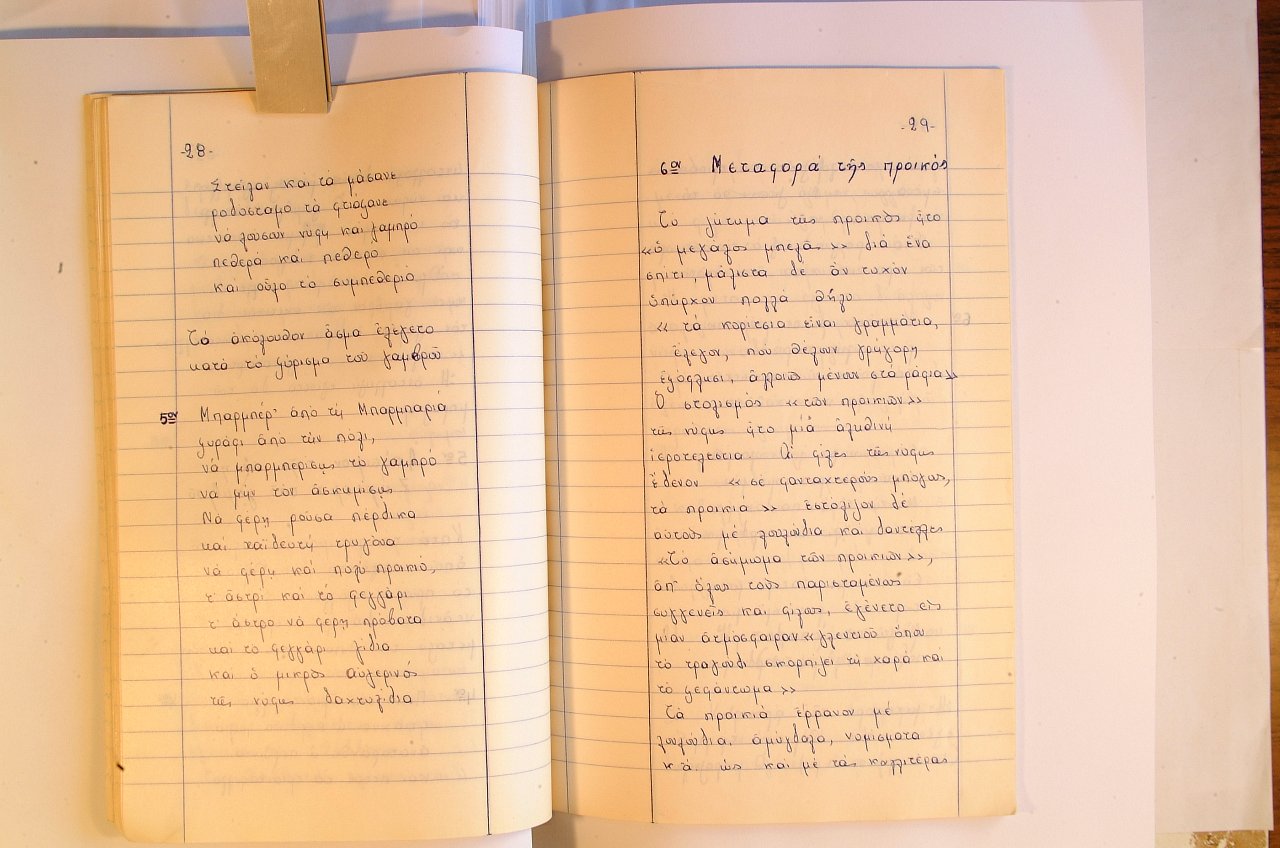 -28-
Στείλαν καὶ τὸ μάσανε
ροδόσταμο τὸ φτιάσανε
νὰ λούσουν νύφη καὶ γαμπρό
πεθερὰ καὶ πεθερό
καὶ οὖλο τὸ συμπεθεριό
Τὸ ἀκόλουθον ἆσμα ἐλέγετο
κατὰ τὸ ξύρισμα τοῦ γαμβροῦ
5ον Μπαρμπέρ' ἀπὸ τὴ Μπαρμπαριά
ξυράφι ἀπὸ τὴν πόλι,
νὰ μπαρμπερίσῃς τὸ γαμπρό
νὰ μὴν τὸν ἀσκημίσῃς
Νὰ φέρῃ ροῦσα πέρδικα
καὶ χαϊδευτὴ τρυγόνα
νὰ φέρῃ καὶ πολὺ προικιό,
τ' ἄστρι καὶ τὸ φεγγάρι
τ' ἄστρο νὰ φέρῃ πρόβατα
καὶ τὸ φεγγάρι γίδια
καὶ ὁ μικρὸς αὐγερινός
τῆς νύφης δαχτυλίδια
-29-
6ον Μεταφορά τῆς προικός
Τὸ ζήτημα τῆς προικὸς ἦτο
«ὁ μεγάλος μπελᾶς» διὰ ἕνα
σπίτι, μάλιστα δὲ ἂν τυχὸν
ὑπῆρχον πολλὰ θήλυ
« τὰ κορίτσια εἶναι γραμμάτια,
ἔλεγον, ποὺ θέλουν γρήγορη
ἐξόφλησι, ἀλλοιῶς μένουν στὰ ράφια»
Ὁ στολισμὸς «τῶν προικιῶν»
τῆς νύφης ἦτο μιὰ ἀληθινή
ἱεροτελεστία Αἱ φίλες τῆς νύφης
ἔδενον « σὲ φανταχτερούς μπόγους,
τὰ προικιά » ἐστόλιζον δὲ
αὐτοὺς μὲ λουλούδια καὶ δαντέλλες
«Τὸ ἀσήμωμα τῶν προικιῶν»,
ἀπ' ὅλους τοὺς παρισταμένους
συγγενεῖς καὶ φίλους, ἐγένετο εἰς
μίαν ἀτμόσφαιραν «γλεντιοῦ ὅπου
τὸ τραγούδι σκορπίζει τὴ χαρὰ καὶ
τὸ ξεφάντωμα»
Τὰ προικιὰ ἔρραινον μὲ
λουλούδια, ἀμύγδαλα, νομίσματα
κ.ἄ. ὡς καὶ μὲ τὰς καλλιτέρας